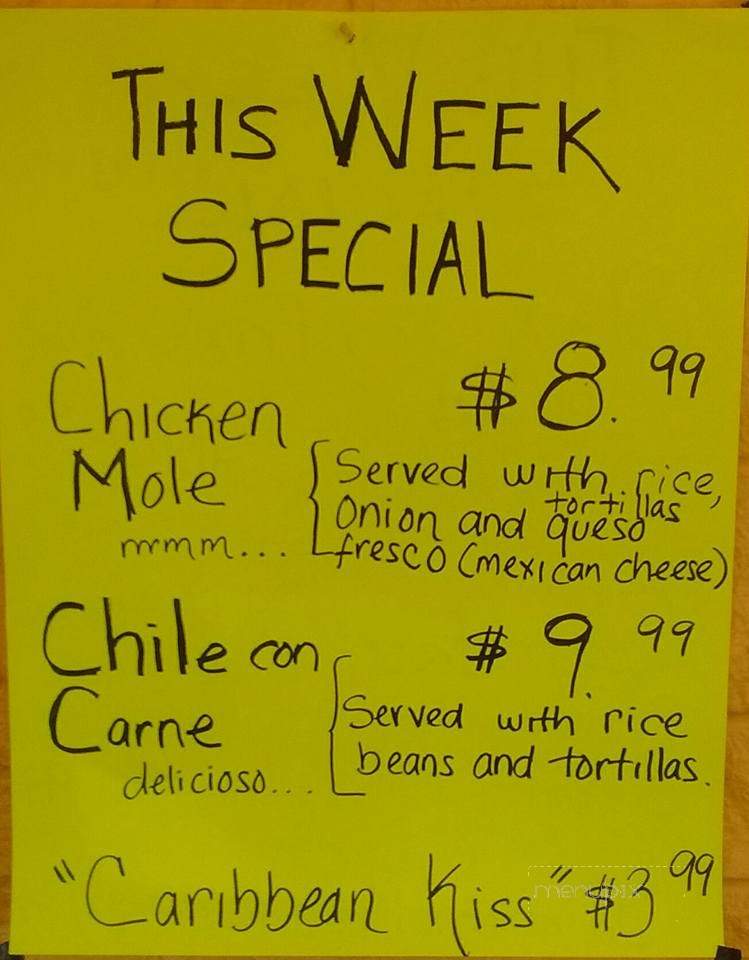 THIS WEEK
SPECIAL
Chicken $8.99
Mole
mmm...
Served with rice,
tortillas
Onion and queso
fresco (mexican cheese)
Chile con $9.99
Carne
delicioso...
Served with rice
beans and tortillas.
"Caribbean Kiss" $3 99
menupix